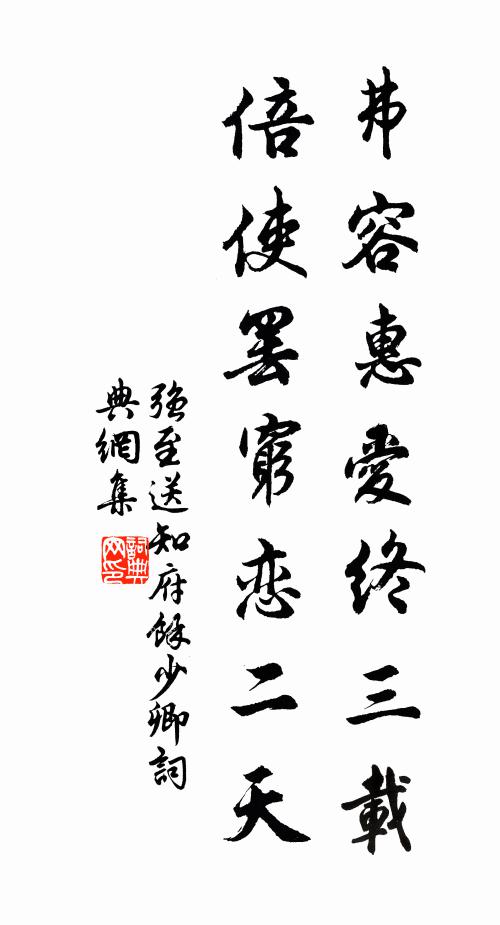 弗容惠愛終三載
倍使罷窮恋二天
強至送知府餘少卿詞
典網集
詞典
网印